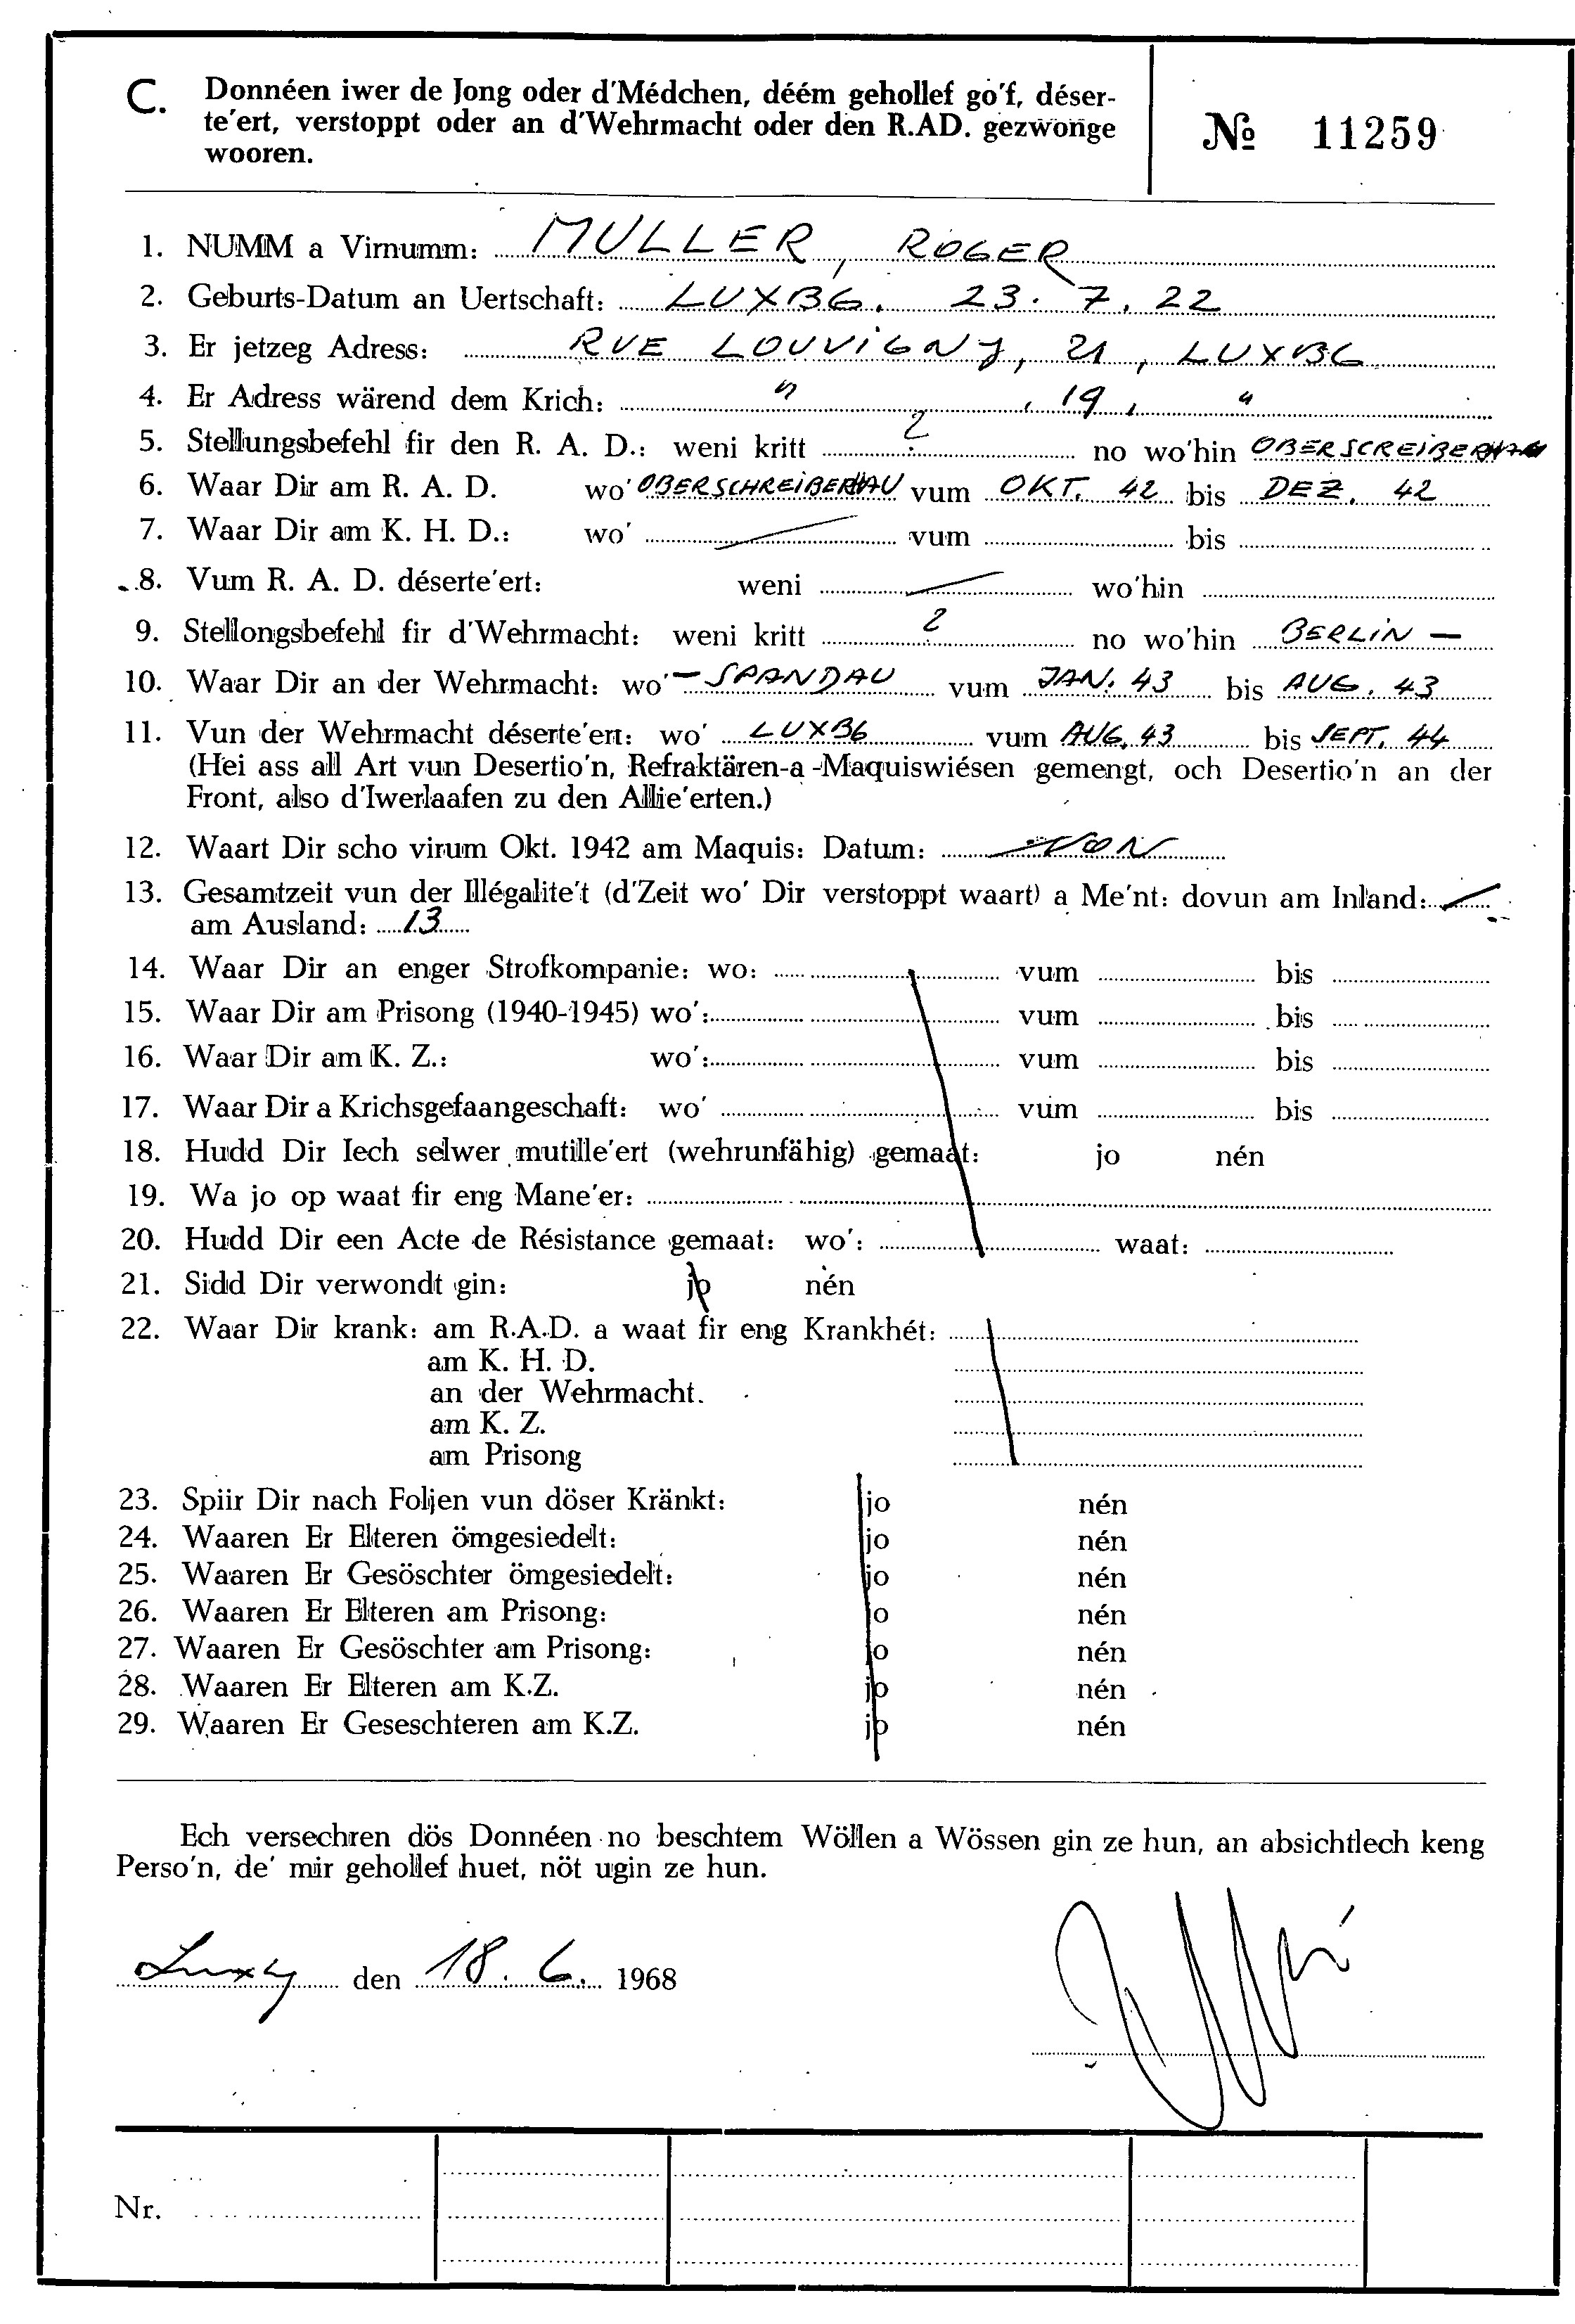 C. Donnéen iwer de Jong oder d'Médchen, déém gehollef go'f, déser-
te'ert, verstoppt oder an d'Wehrmacht oder den R.AD. gezwonge
wooren.
№ 11259
1. NUMM a Virnumm: MULLER, ROGER
2. Geburts-Datum an Uertschaft: LUXBG. 23. 7. 22
3. Er jetzeg Adress: RUE LOUVIGNY, 21, LUXBG
4. Er Adress wärend dem Krich: " , 19, "
5. Stellungsbefehl fir den R. A. D.: weni kritt ? no wo'hin OBERSCREIBERHAU
6. Waar Dir am R. A. D. wo' OBERSCHREIBERHAU vum OKT. 42 bis DEZ. 42
7. Waar Dir am K. H. D.: wo' vum bis
8. Vum R. A. D. déserte'ert: weni wo'hin
9. Stellongsbefehl fir d'Wehrmacht: weni kritt ? no wo'hin BERLIN -
10. Waar Dir an der Wehrmacht: wo' - SPANDAU vum JAN. 43 bis AUG. 43
11. Vun der Wehrmacht déserte'ert: wo' LUXBG vum AUG. 43 bis SEPT. 44
(Hei ass all Art vun Desertio'n, Refraktären-a -Maquiswiésen gemengt, och Desertio'n an der
Front, also d'Iwerlaafen zu den Allie'erten.)
12. Waart Dir scho virum Okt. 1942 am Maquis: Datum: NON
13. Gesamtzeit vun der Illégalite't (d'Zeit wo' Dir verstoppt waart) a Me'nt: dovun am Inland:
am Ausland: 13
14. Waar Dir an enger Strofkompanie: wo: vum bis
15. Waar Dir am Prisong (1940-1945) wo': vum bis
16. Waar Dir am K. Z.: wo': vum bis
17. Waar Dir a Krichsgefaangeschaft: wo' vum bis
18. Hudd Dir Iech selwer mutille'ert (wehrunfähig) gemaat: jo nén
19. Wa jo op waat fir eng Mane'er:
20. Hudd Dir een Acte de Résistance gemaat: wo': waat:
21. Sidd Dir verwondt gin: jo nén
22. Waar Dir krank: am R.A.D. a waat fir eng Krankhét:
am K. H. D.
an der Wehrmacht.
am K. Z.
am Prisong
23. Spiir Dir nach Foljen vun döser Kränkt: jo nén
24. Waaren Er Elteren ömgesiedelt: jo nén
25. Waaren Er Gesöschter ömgesiedelt: jo nén
26. Waaren Er Elteren am Prisong: jo nén
27. Waaren Er Gesöschter am Prisong: jo nén
28. Waaren Er Elteren am K.Z. jo nén
29. Waaren Er Geseschteren am K.Z. jo nén
Ech versechren dös Donnéen no beschtem Wöllen a Wössen gin ze hun, an absichtlech keng
Perso'n, de' mir gehollef huet, nöt ugin ze hun.
Luxbg den 18. 6. 1968
Nr.